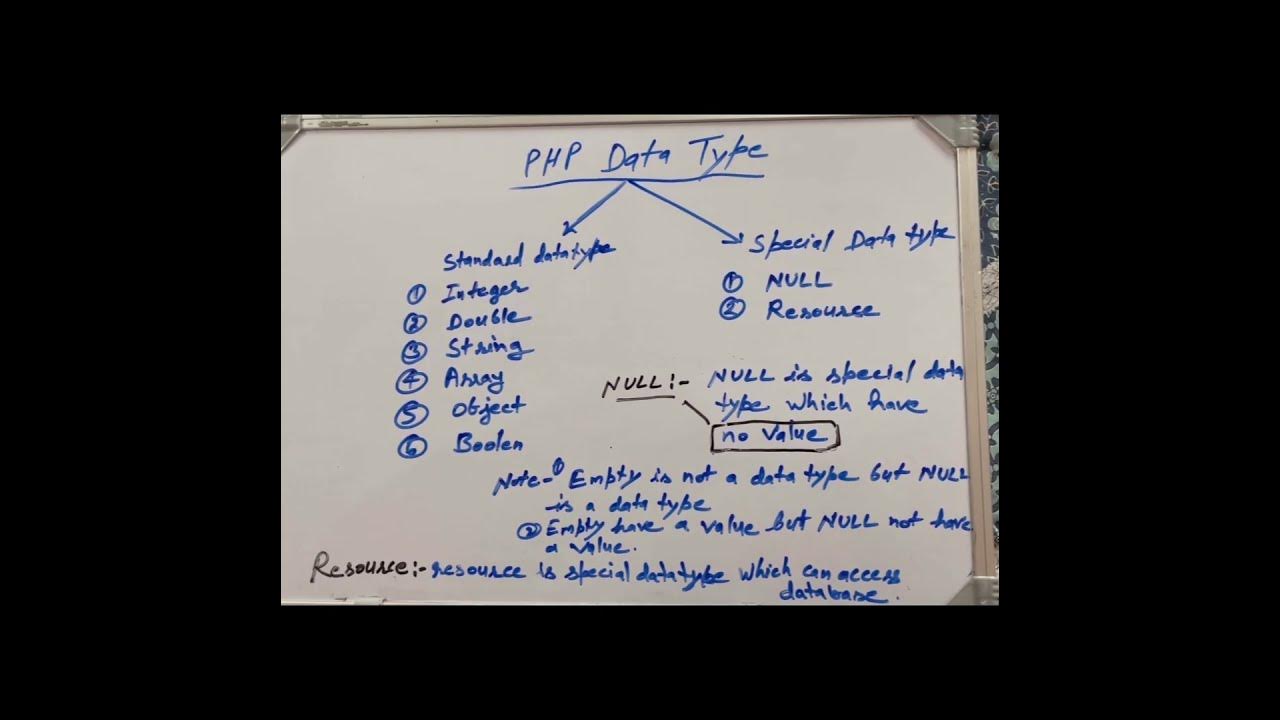 PHP Data Type
Standard datatype
① Integer
② Double
③ String
④ Array
⑤ Object
⑥ Boolen
Special Data type
① NULL
② Resource
NULL :- NULL is special data
type which have
no value
Note- ① Empty is not a data type but NULL
is a data type
② Empty have a value but NULL not have
a value.
Resource :- resource is special datatype which can access
database.